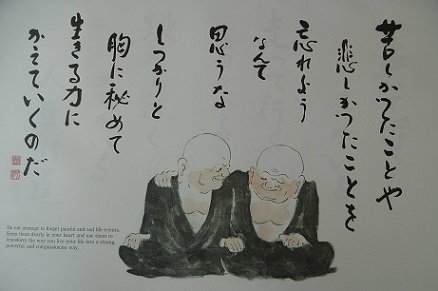 苦しかったことや
悲しかったことを
忘れよう
なんて
思うな
しっかりと
胸に秘めて
生きる力に
かえていくのだ
Do not attempt to forget painful and sad life events.
Keep them dearly in your heart and use them to
transform the way you live your life into a strong,
powerful and compassionate way.